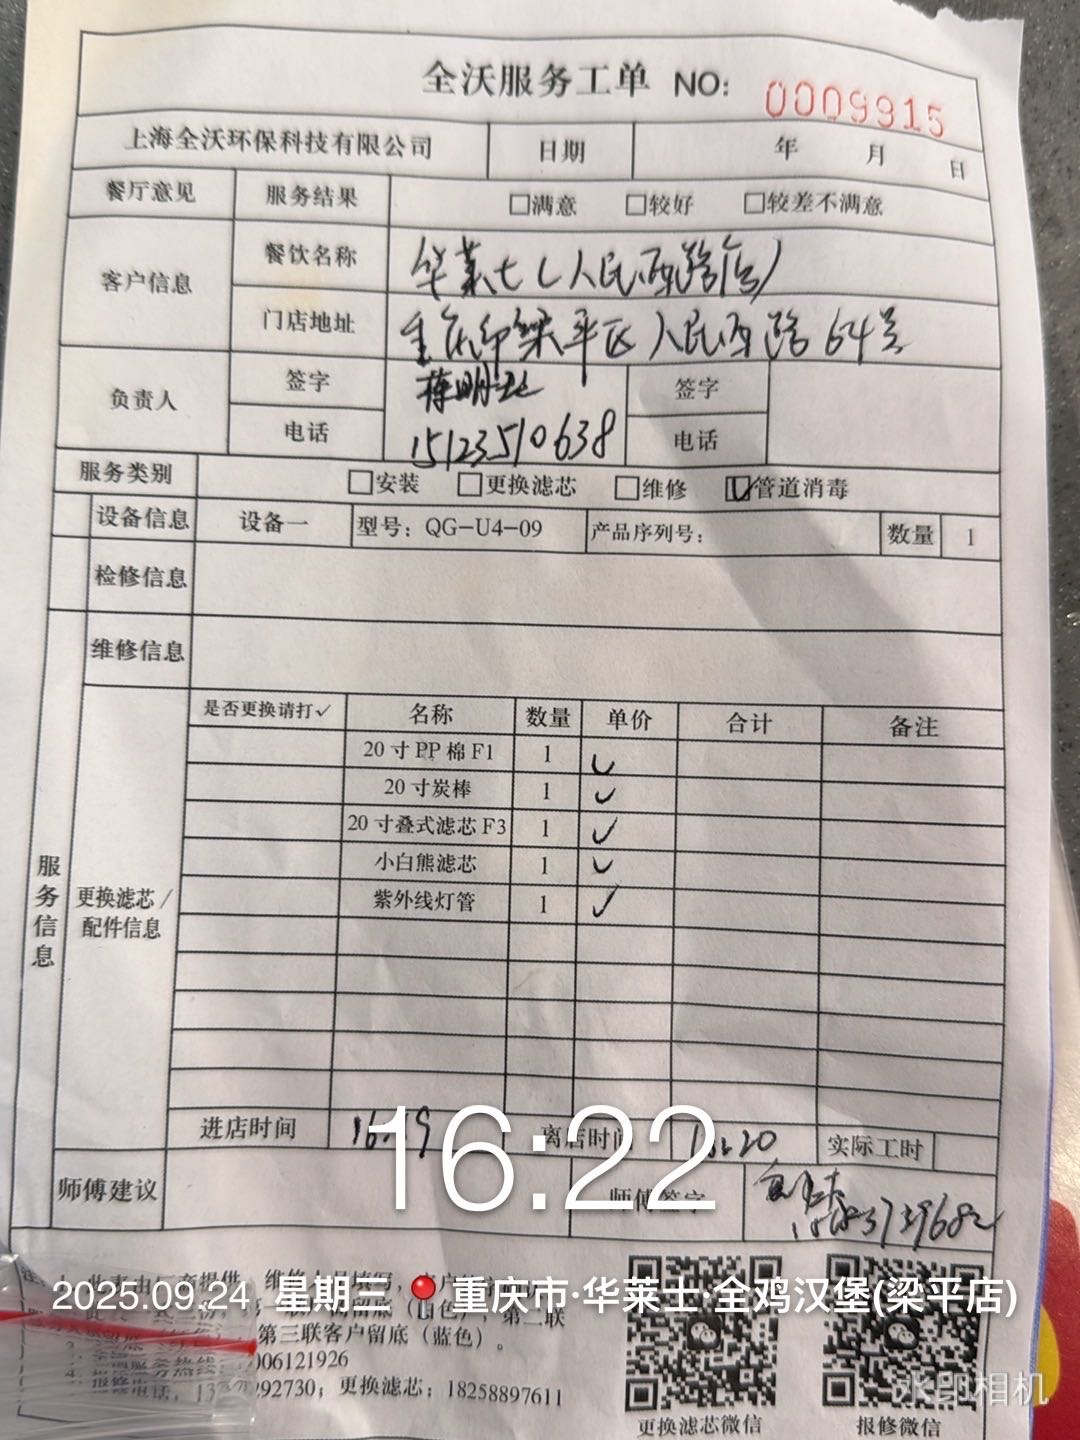 全沃服务工单 NO: 0009915
上海全沃环保科技有限公司 日期 年 月 日
餐厅意见 服务结果 □满意 □较好 □较差不满意
客户信息 餐饮名称 华莱士(人民西路店)
门店地址 重庆市梁平区人民西路64号
负责人 签字 签字
电话 15123510638 电话
服务类别 □安装 □更换滤芯 □维修 ☑管道消毒
设备信息 设备一 型号: QG-U4-09 产品序列号: 数量 1
检修信息
维修信息
服务信息
更换滤芯/
配件信息
是否更换请打✓ 名称 数量 单价 合计 备注
20寸PP棉F1 1 ✓
20寸炭棒 1 ✓
20寸叠式滤芯F3 1 ✓
小白熊滤芯 1 ✓
紫外线灯管 1 ✓
进店时间 离店时间 实际工时
16:22
师傅建议 师傅签字
2025.09.24 星期三 重庆市·华莱士·全鸡汉堡(梁平店)
第三联客户留底(蓝色)。
006121926
292730; 更换滤芯: 18258897611
更换滤芯微信 报修微信
水印相机